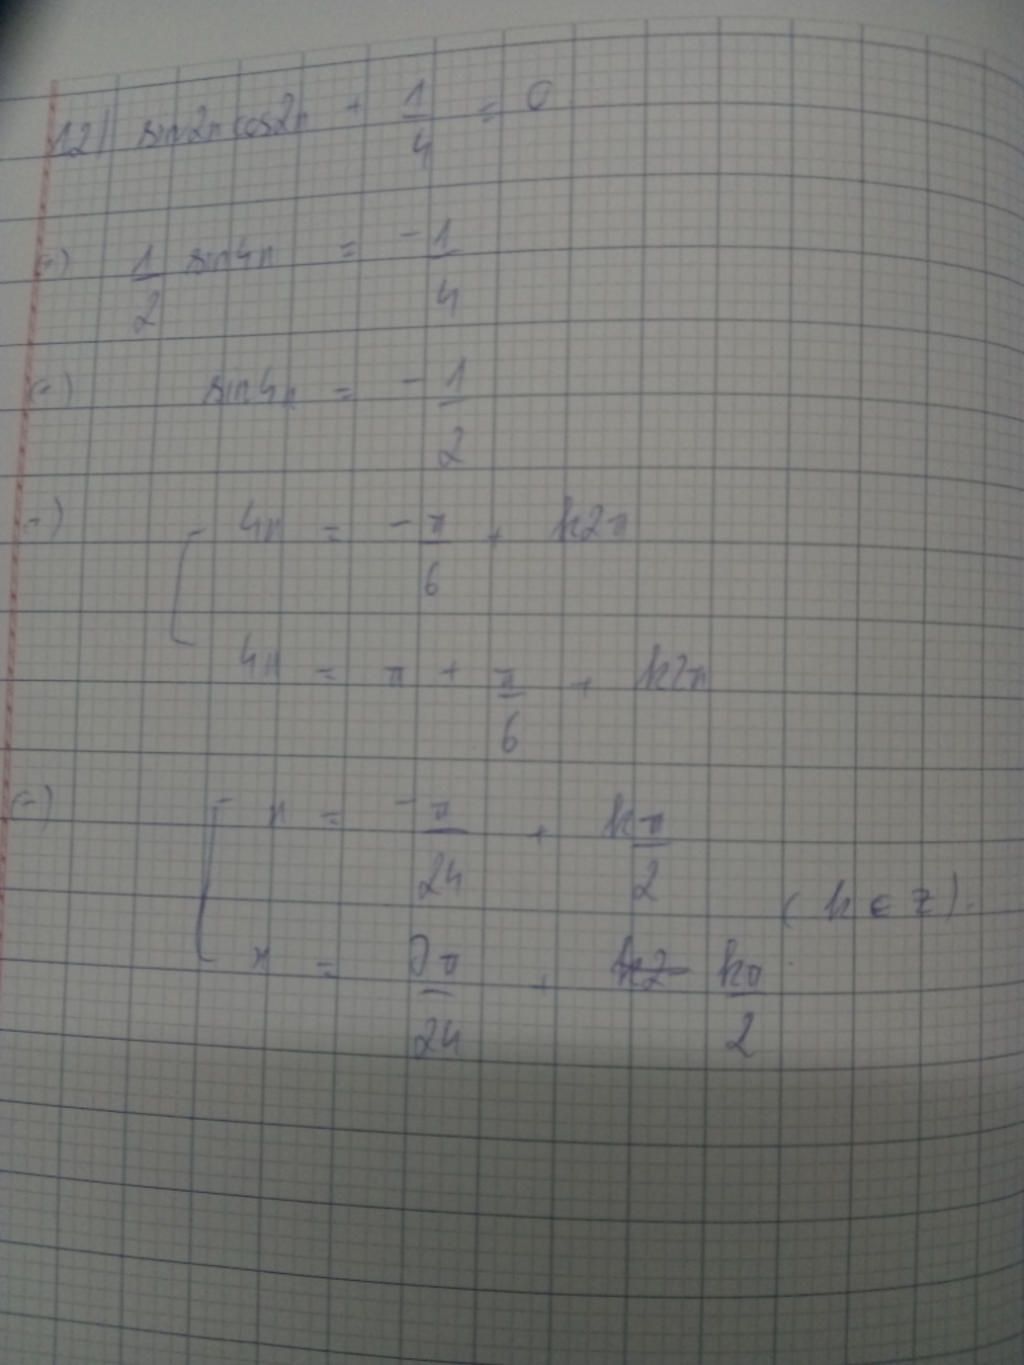 12) sin2x cos2x + 1/4 = 0
(=) 1/2 sin4x = -1/4
(=) sin4x = -1/2
(=) [ 4x = -π/6 + k2π
4x = π + π/6 + k2π
(=) [ x = -π/24 + kπ/2
(k ∈ Z).
x = 7π/24 + k2 kπ/2